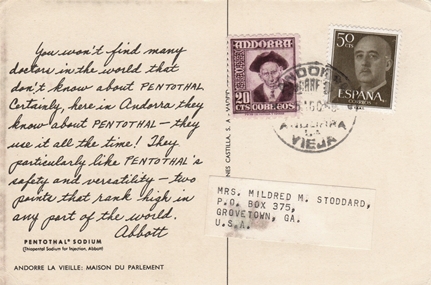 You won't find many
doctors in the world that
don't know about PENTOTHAL.
Certainly, here in Andorra, they
know about PENTOTHAL — they
use it all the time! They
particularly like PENTOTHAL's
safety and versatility — two
points that rank high in
any part of the world.
Abbott
PENTOTHAL® SODIUM
(Thiopental Sodium for Injection, Abbott)
ANDORRE LA VIEILLE: MAISON DU PARLEMENT
ANDORRA
20
CTS CORREOS
50
CTS
ESPAÑA
CORREOS
ANDORRA
LA
VIEJA
CASTILLA, S. A.
MRS. MILDRED M. STODDARD,
P.O. BOX 375,
GROVETOWN, GA.
U.S.A.